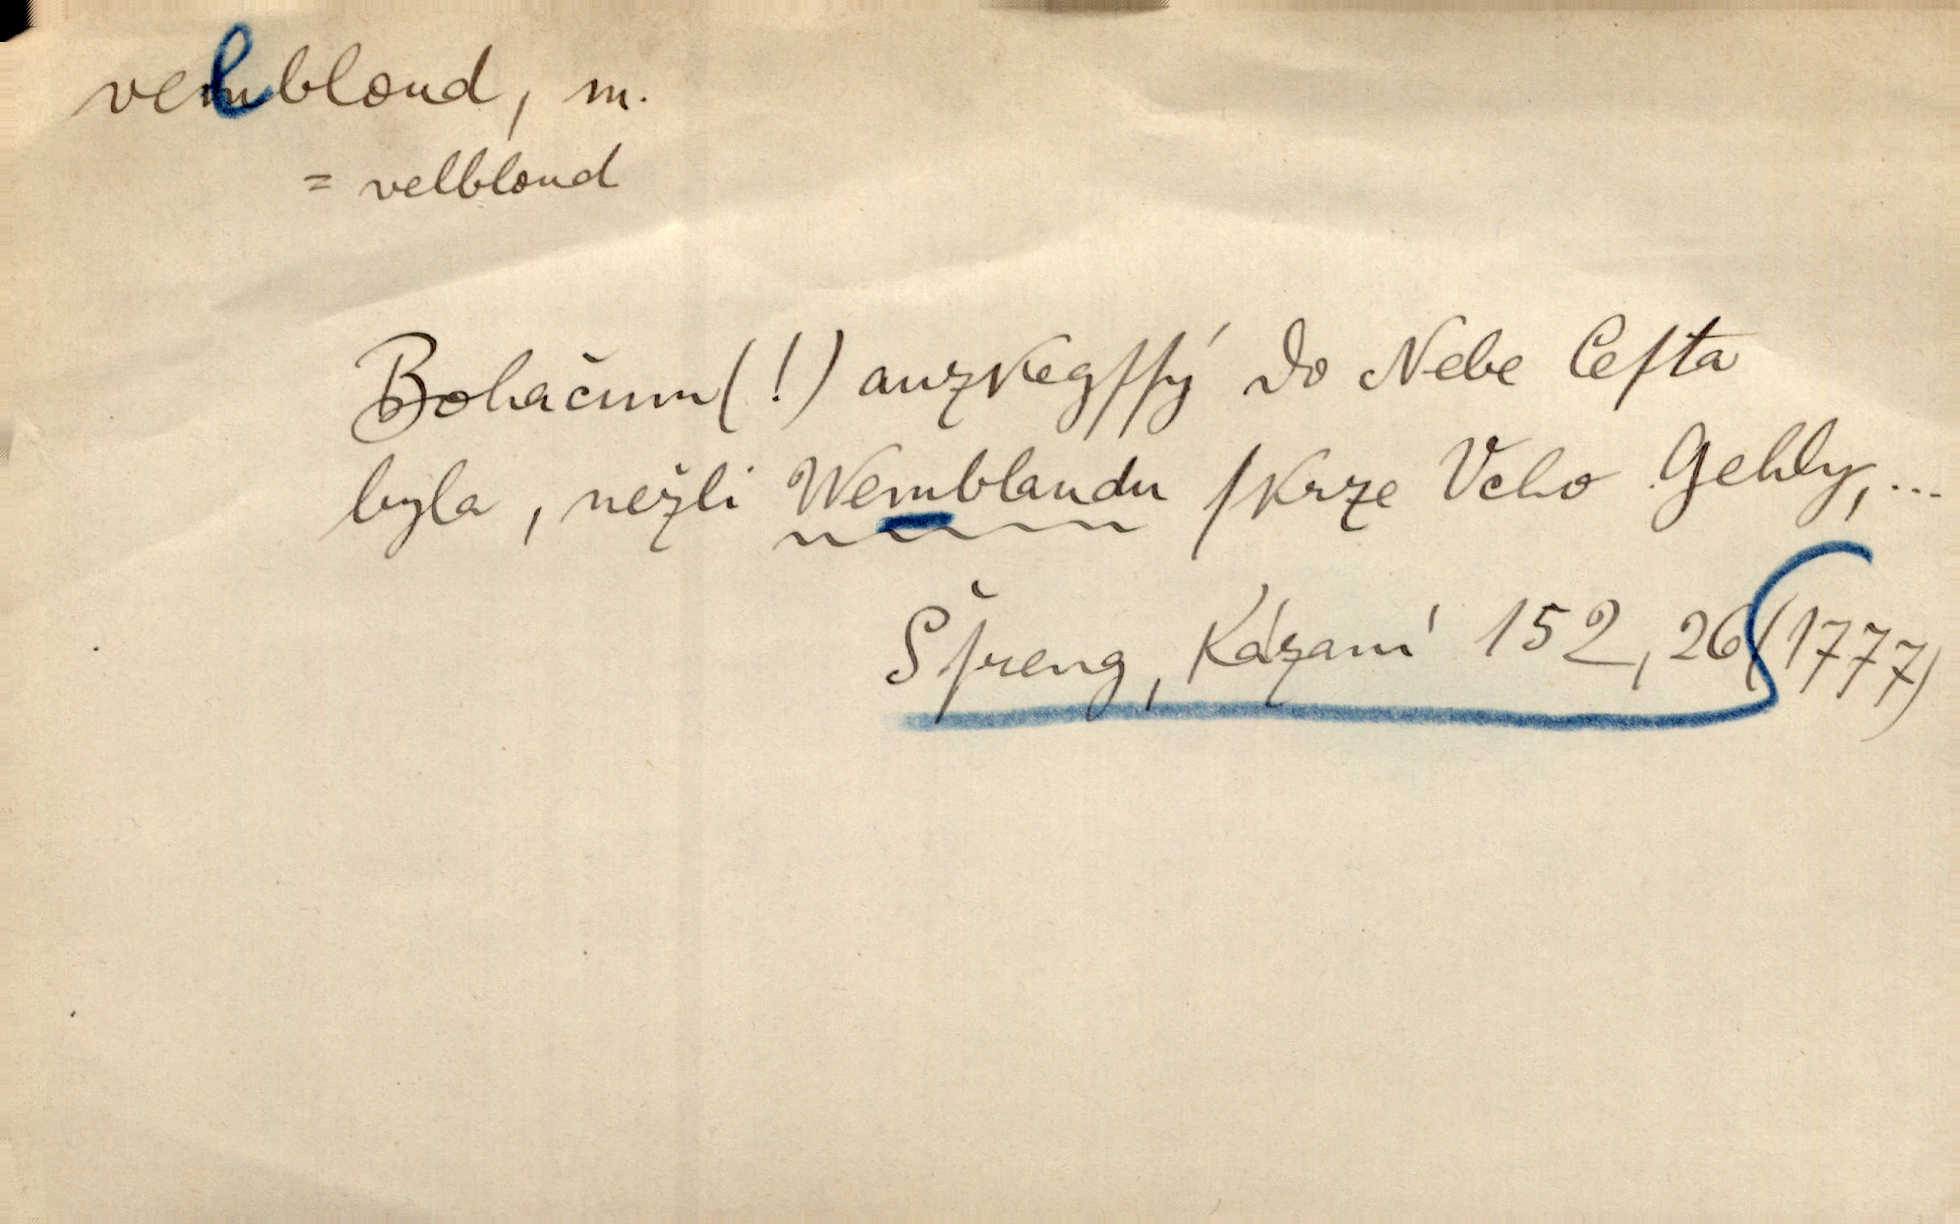 velbloud, m.
= velbloud
Bohačum (!) auzkegſſý do Nebe Ceſta
byla, nežli Wemblaudu ſkrze Vcho Gehly, ...
Špreng, Kázaní 152, 26 (1777)